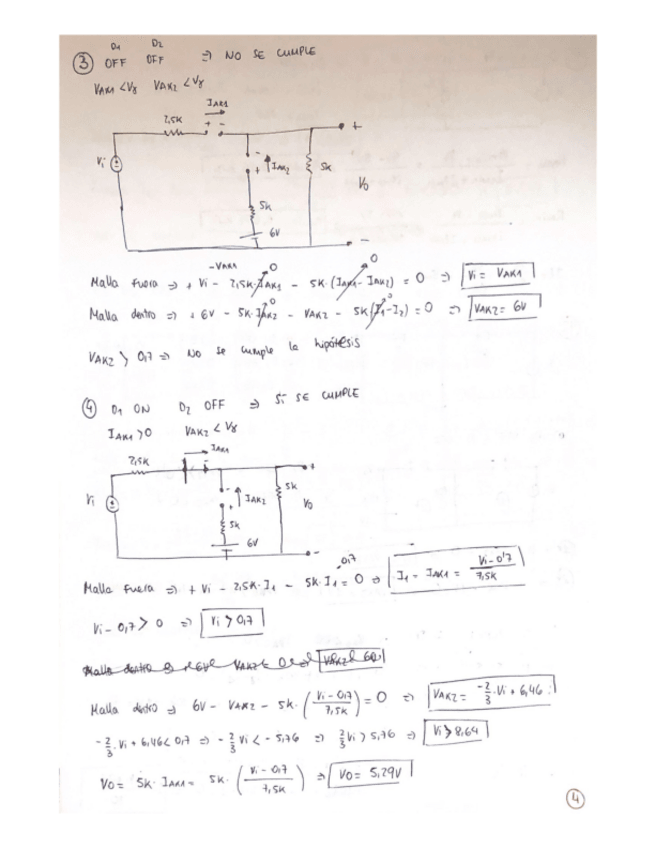 D1 D2
③ OFF OFF ⇒ NO SE CUMPLE
VAK1 < Vγ VAK2 < Vγ
IAK1
2,5K + -
+
Vi
-
+ IAK2
5K
Vo
5K
6V
-
-VAK1 0 0
Malla Fuera ⇒ + Vi - 2,5K·IAK1 - 5K·(IAK1 - IAK2) = 0 ⇒ Vi = VAK1
0 0
Malla dentro ⇒ + 6V - 5K·IAK2 - VAK2 - 5K(I1-I2) = 0 ⇒ VAK2 = 6V
VAK2 > 0,7 ⇒ No se cumple la hipótesis
④ D1 ON D2 OFF ⇒ SÍ SE CUMPLE
IAK1 > 0 VAK2 < Vγ
IAK1
2,5K
+
Vi
-
+ IAK2
5K
Vo
5K
6V
-
-0,7
Malla Fuera ⇒ + Vi - 2,5K·I1 - 5K·I1 = 0 ⇒ I1 = IAK1 = Vi - 0'7 / 7,5K
Vi - 0,7 > 0 ⇒ Vi > 0,7
Malla dentro ⇒ 6V - VAK2 - 5K·(Vi - 0,7 / 7,5K) = 0 ⇒ VAK2 = -2/3·Vi + 6,46
-2/3·Vi + 6,46 < 0,7 ⇒ -2/3·Vi < -5,76 ⇒ 2/3 Vi > 5,76 ⇒ Vi > 8,64
Vo = 5K·IAK1 = 5K·(Vi - 0,7 / 7,5K) ⇒ Vo = 5,29V
④